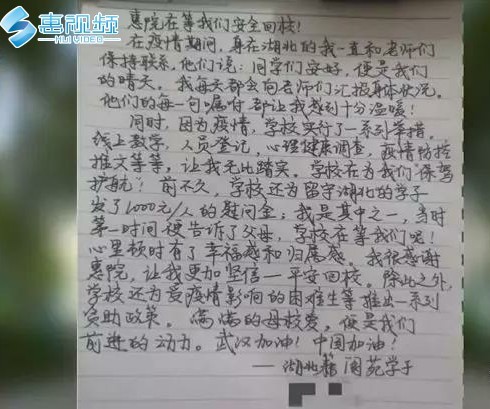 惠视频
HUI VIDEO
惠院在等我们安全回校!
在疫情期间,身在湖北的我一直和老师们
保持联系,他们说:同学们安好,便是我们
的晴天。我每天都会向老师们汇报身体状况。
他们的每一句嘱咐都让我感到十分温暖!
同时,因为疫情,学校实行了一系列举措。
线上教学,人员登记,心理健康调查,疫情防控
推文等等,让我无比踏实。学校在为我们保驾
护航!前不久,学校还为留守湖北的学子
发了1000元/人的慰问金;我是其中之一,当时
第一时间便告诉了父母,学校在等我们呢!
心里顿时有了幸福感和归属感。我很感谢
惠院,让我更加坚信一平安回校。除此之外,
学校还为受疫情影响的困难生等推出一系列
资助政策。满满的母校爱,便是我们
前进的动力。武汉加油!中国加油!
——湖北籍 阅苑学子